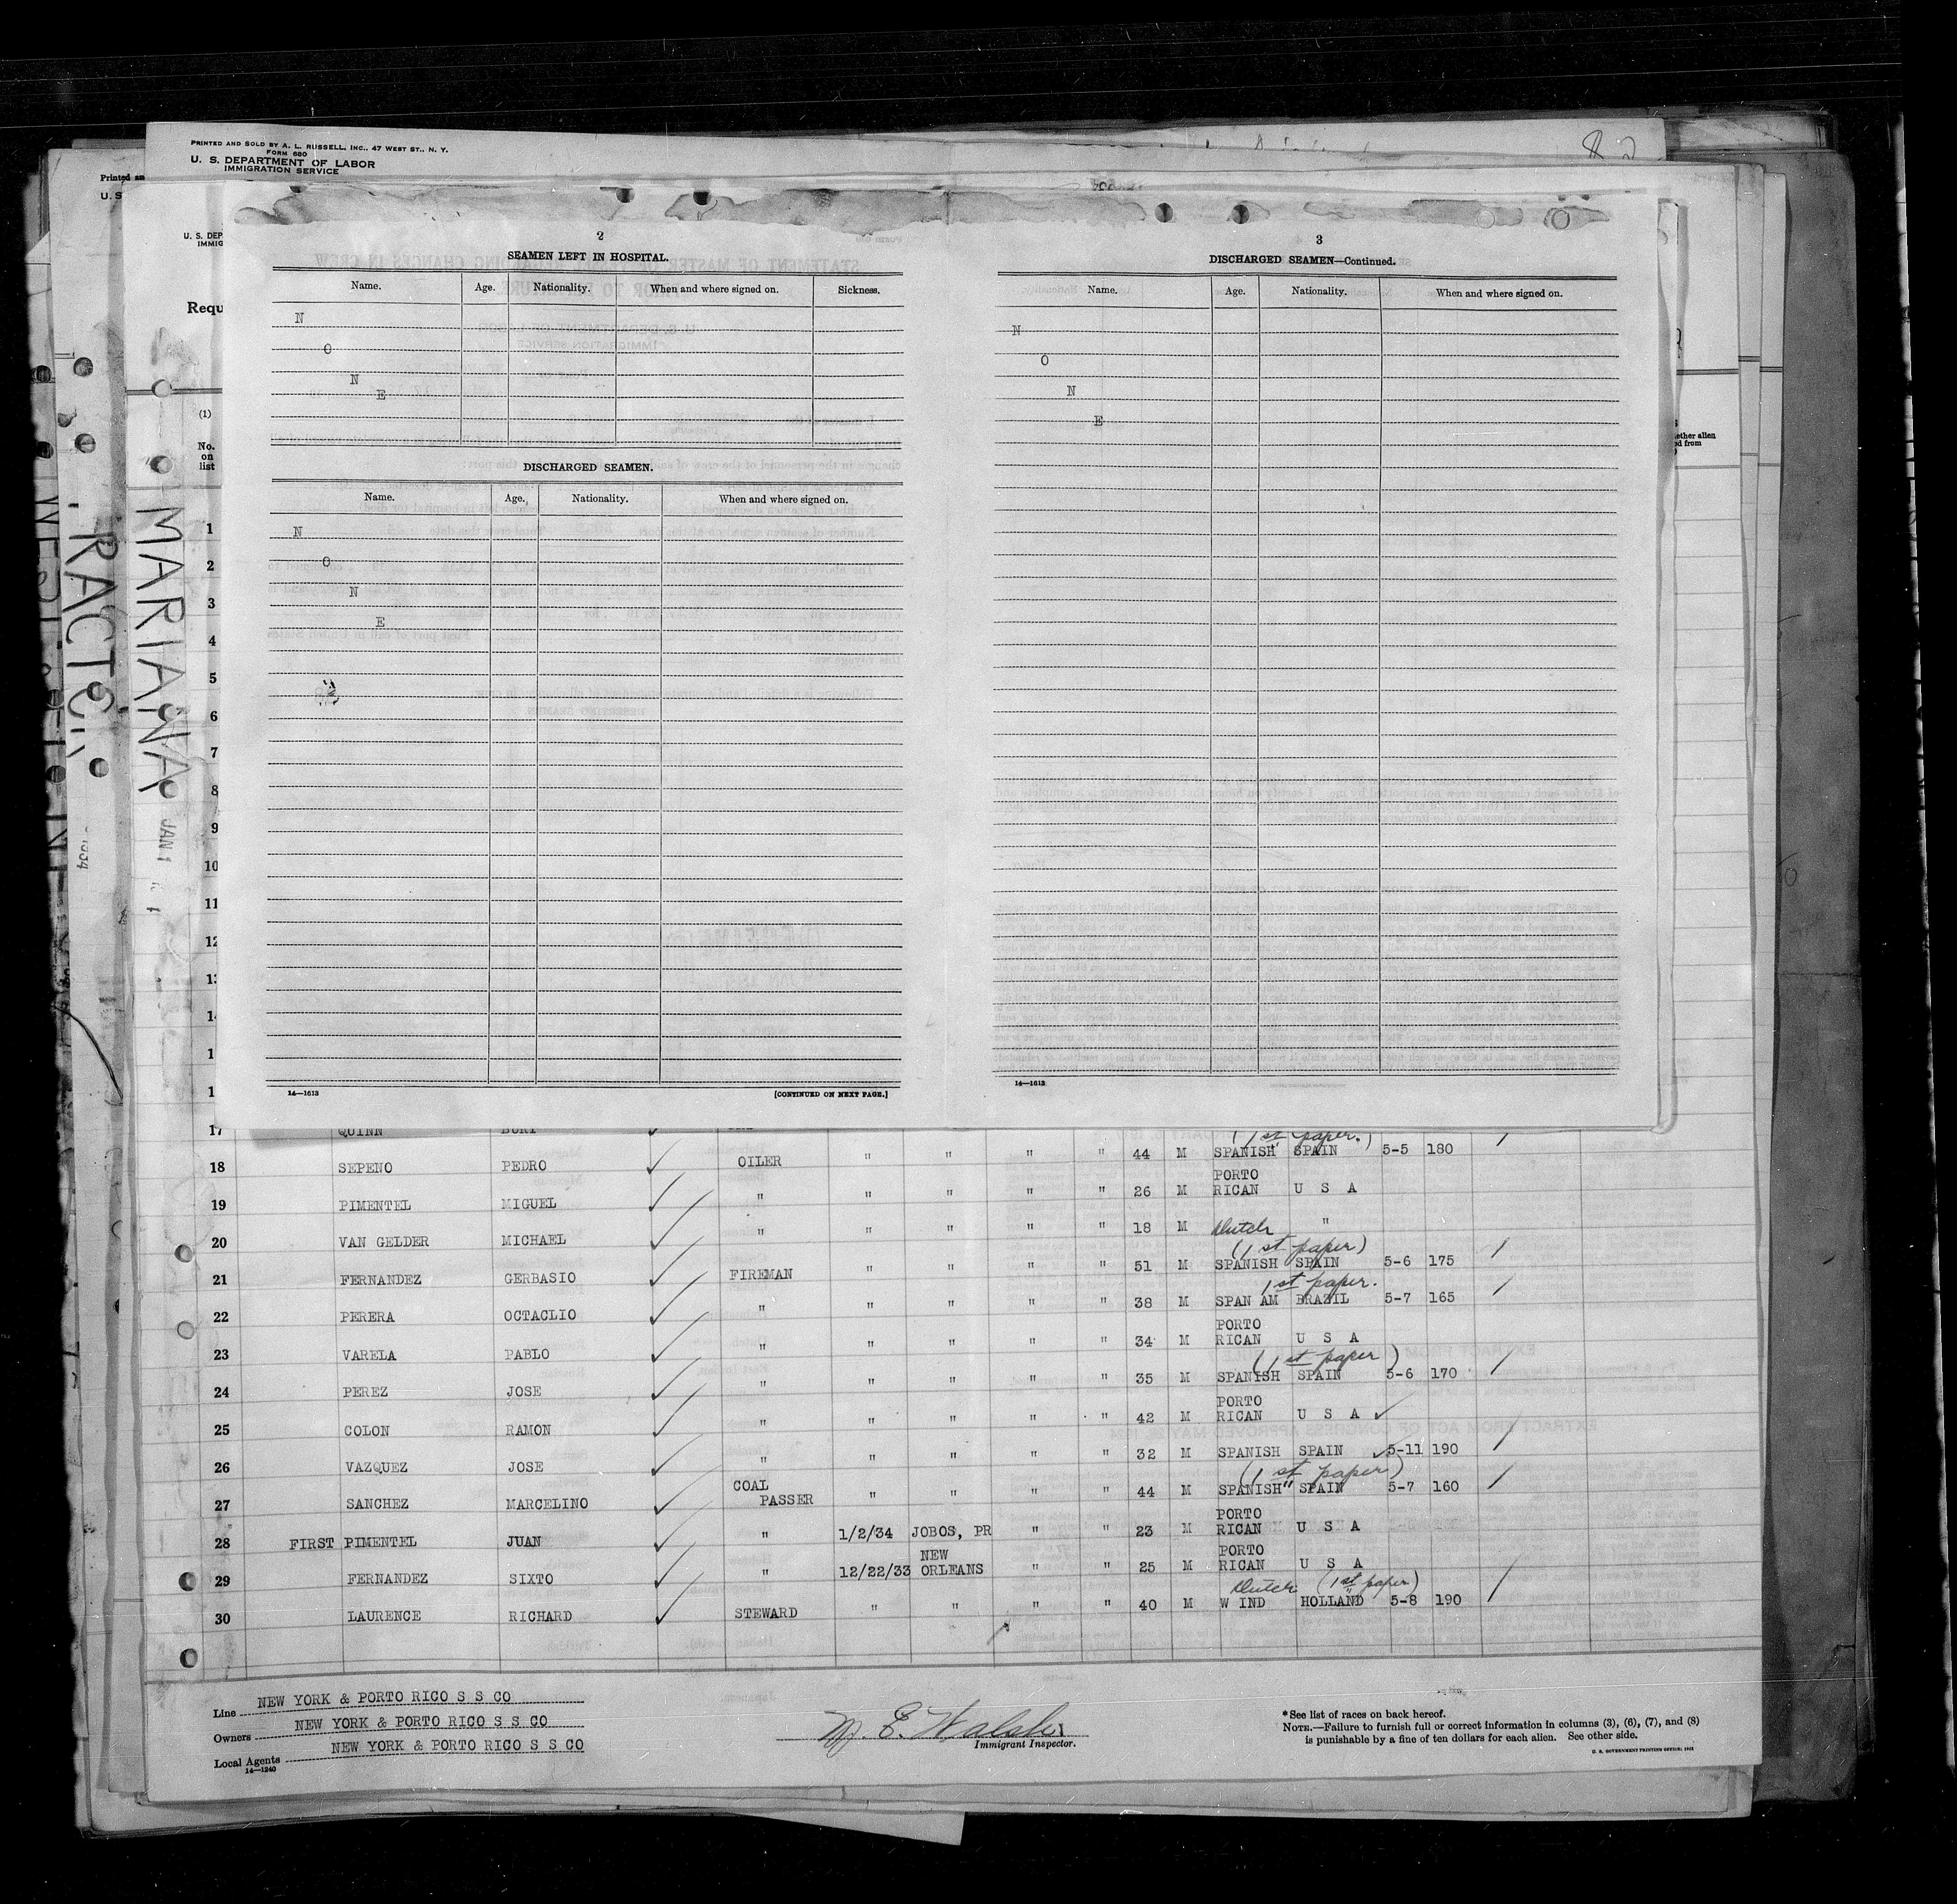 PRINTED AND SOLD BY A. L. RUSSELL, INC., 47 WEST ST., N. Y.
FORM 680
U. S. DEPARTMENT OF LABOR
IMMIGRATION SERVICE
Printed an
U. S
U. S. DEP
IMMIG
Requ
(1)
No.
on
list
MARIANA
JAN 1
RACTER
2
SEAMEN LEFT IN HOSPITAL.
Name. Age. Nationality. When and where signed on. Sickness.
N
O
N
E
DISCHARGED SEAMEN.
Name. Age. Nationality. When and where signed on.
N
O
N
E
14—1613 [CONTINUED ON NEXT PAGE.]
3
DISCHARGED SEAMEN—Continued.
Name. Age. Nationality. When and where signed on.
N
O
N
E
14—1613
ether alien
ed from
1
2
3
4
5
6
7
8
9
10
11
12
13
1
1
1
17 QUINN BURT (1st paper.)
18 SEPENO PEDRO OILER " " " " 44 M SPANISH SPAIN 5-5 180
19 PIMENTEL MIGUEL " " " " " 26 M PORTO RICAN U S A
20 VAN GELDER MICHAEL " " " " " 18 M Dutch "
21 FERNANDEZ GERBASIO FIREMAN " " " " 51 M SPANISH SPAIN (1st paper) 5-6 175
22 PERERA OCTACLIO " " " " " 38 M SPAN AM BRAZIL 1st paper. 5-7 165
23 VARELA PABLO " " " " " 34 M PORTO RICAN U S A
24 PEREZ JOSE " " " " " 35 M SPANISH SPAIN (1st paper) 5-6 170
25 COLON RAMON " " " " " 42 M PORTO RICAN U S A
26 VAZQUEZ JOSE " " " " " 32 M SPANISH SPAIN 5-11 190
27 SANCHEZ MARCELINO COAL PASSER " " " " 44 M SPANISH " SPAIN (1st paper) 5-7 160
28 FIRST PIMENTEL JUAN " 1/2/34 JOBOS, PR " " 23 M PORTO RICAN U S A
29 FERNANDEZ SIXTO " 12/22/33 NEW ORLEANS " " 25 M PORTO RICAN U S A
30 LAURENCE RICHARD STEWARD " " " " 40 M W IND Dutch HOLLAND (1st paper) 5-8 190
Line NEW YORK & PORTO RICO S S CO
Owners NEW YORK & PORTO RICO S S CO
Local Agents NEW YORK & PORTO RICO S S CO
14—1240
E. Walsh
Immigrant Inspector.
*See list of races on back hereof.
NOTE.—Failure to furnish full or correct information in columns (3), (6), (7), and (8)
is punishable by a fine of ten dollars for each alien. See other side.
U. S. GOVERNMENT PRINTING OFFICE: